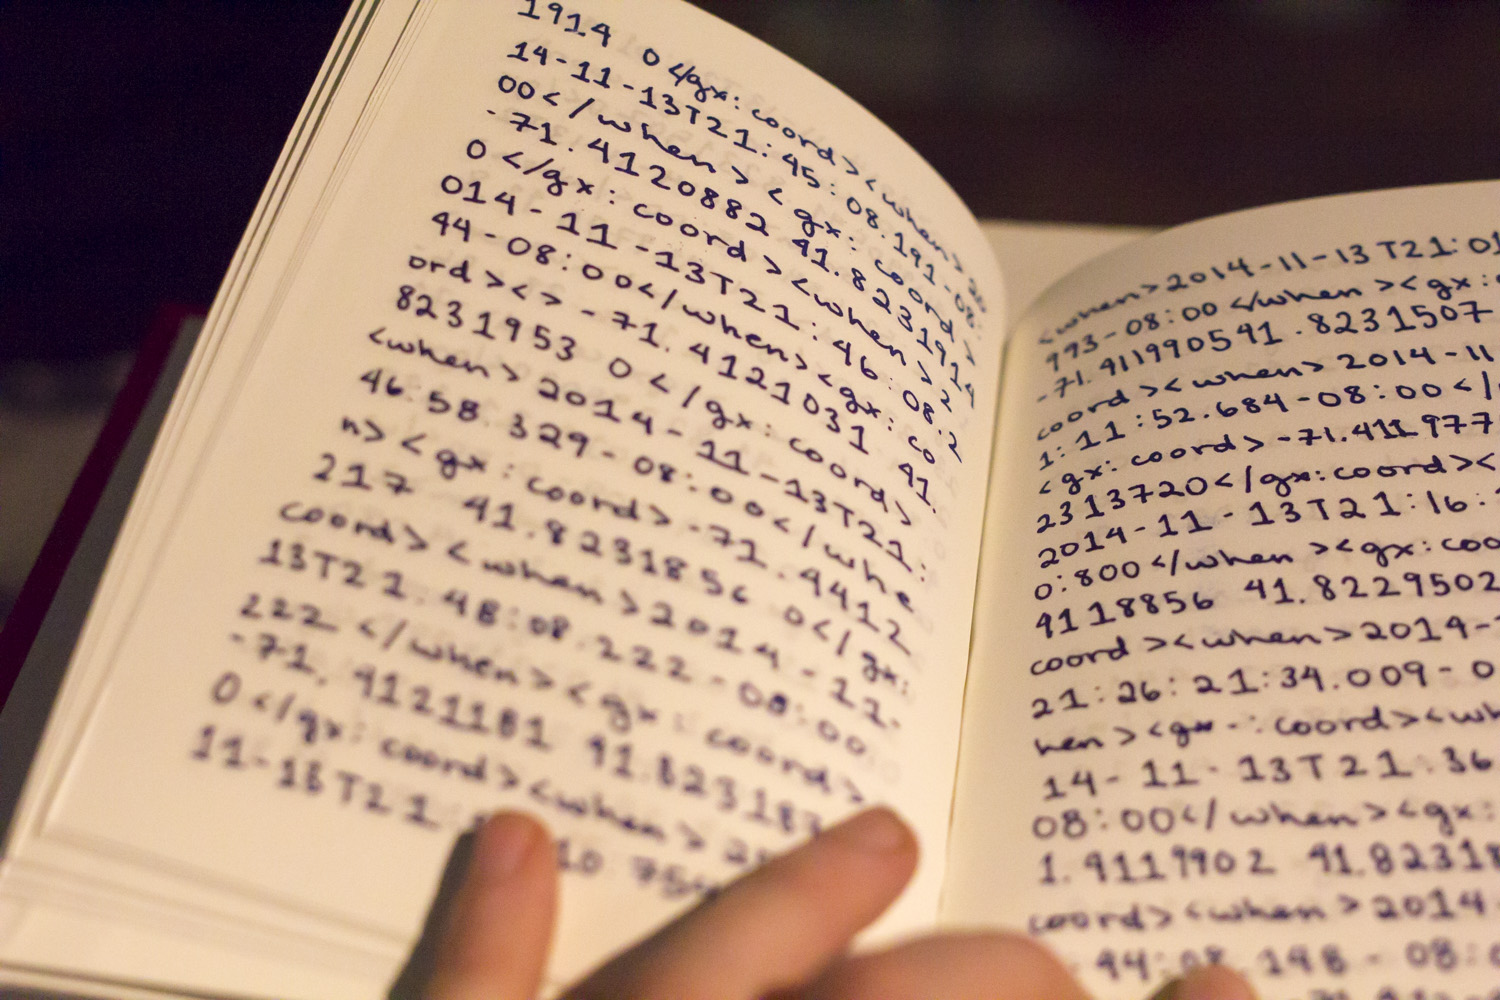 1914 0</gx:coord><when>20
14-11-13T21:45:08.191-08:
00</when><gx:coord>
-71.4120882 41.8231914
0</gx:coord><when>2
014-11-13T21:46:08.2
44-08:00</when><gx:co
ord><>-71.4121031 41.
8231953 0</gx:coord>
<when>2014-11-13T21:
46:58.329-08:00</whe
n><gx:coord>-71.4412
217 41.8231856 0</gx:
coord><when>2014-11-
13T21.48:08.222-08:00.
222</when><gx:coord>
-71.4121181 41.823187
0</gx:coord><when>
11-13T21:
<when>2014-11-13T21:01
993-08:00</when><gx:
-71.411990541.8231507
coord><when>2014-11
1:11:52.684-08:00</
<gx:coord>-71.411977
2313720</gx:coord><
2014-11-13T21:16:
0:800</when><gx:coo
4118856 41.8229502
coord><when>2014-
21:26:21:34.009-0
hen><gx-:coord><wh
14-11-13T21.36
08:00</when><gx:
1.4117902 41.8231
coord><when>2014
44:08.198-08:0